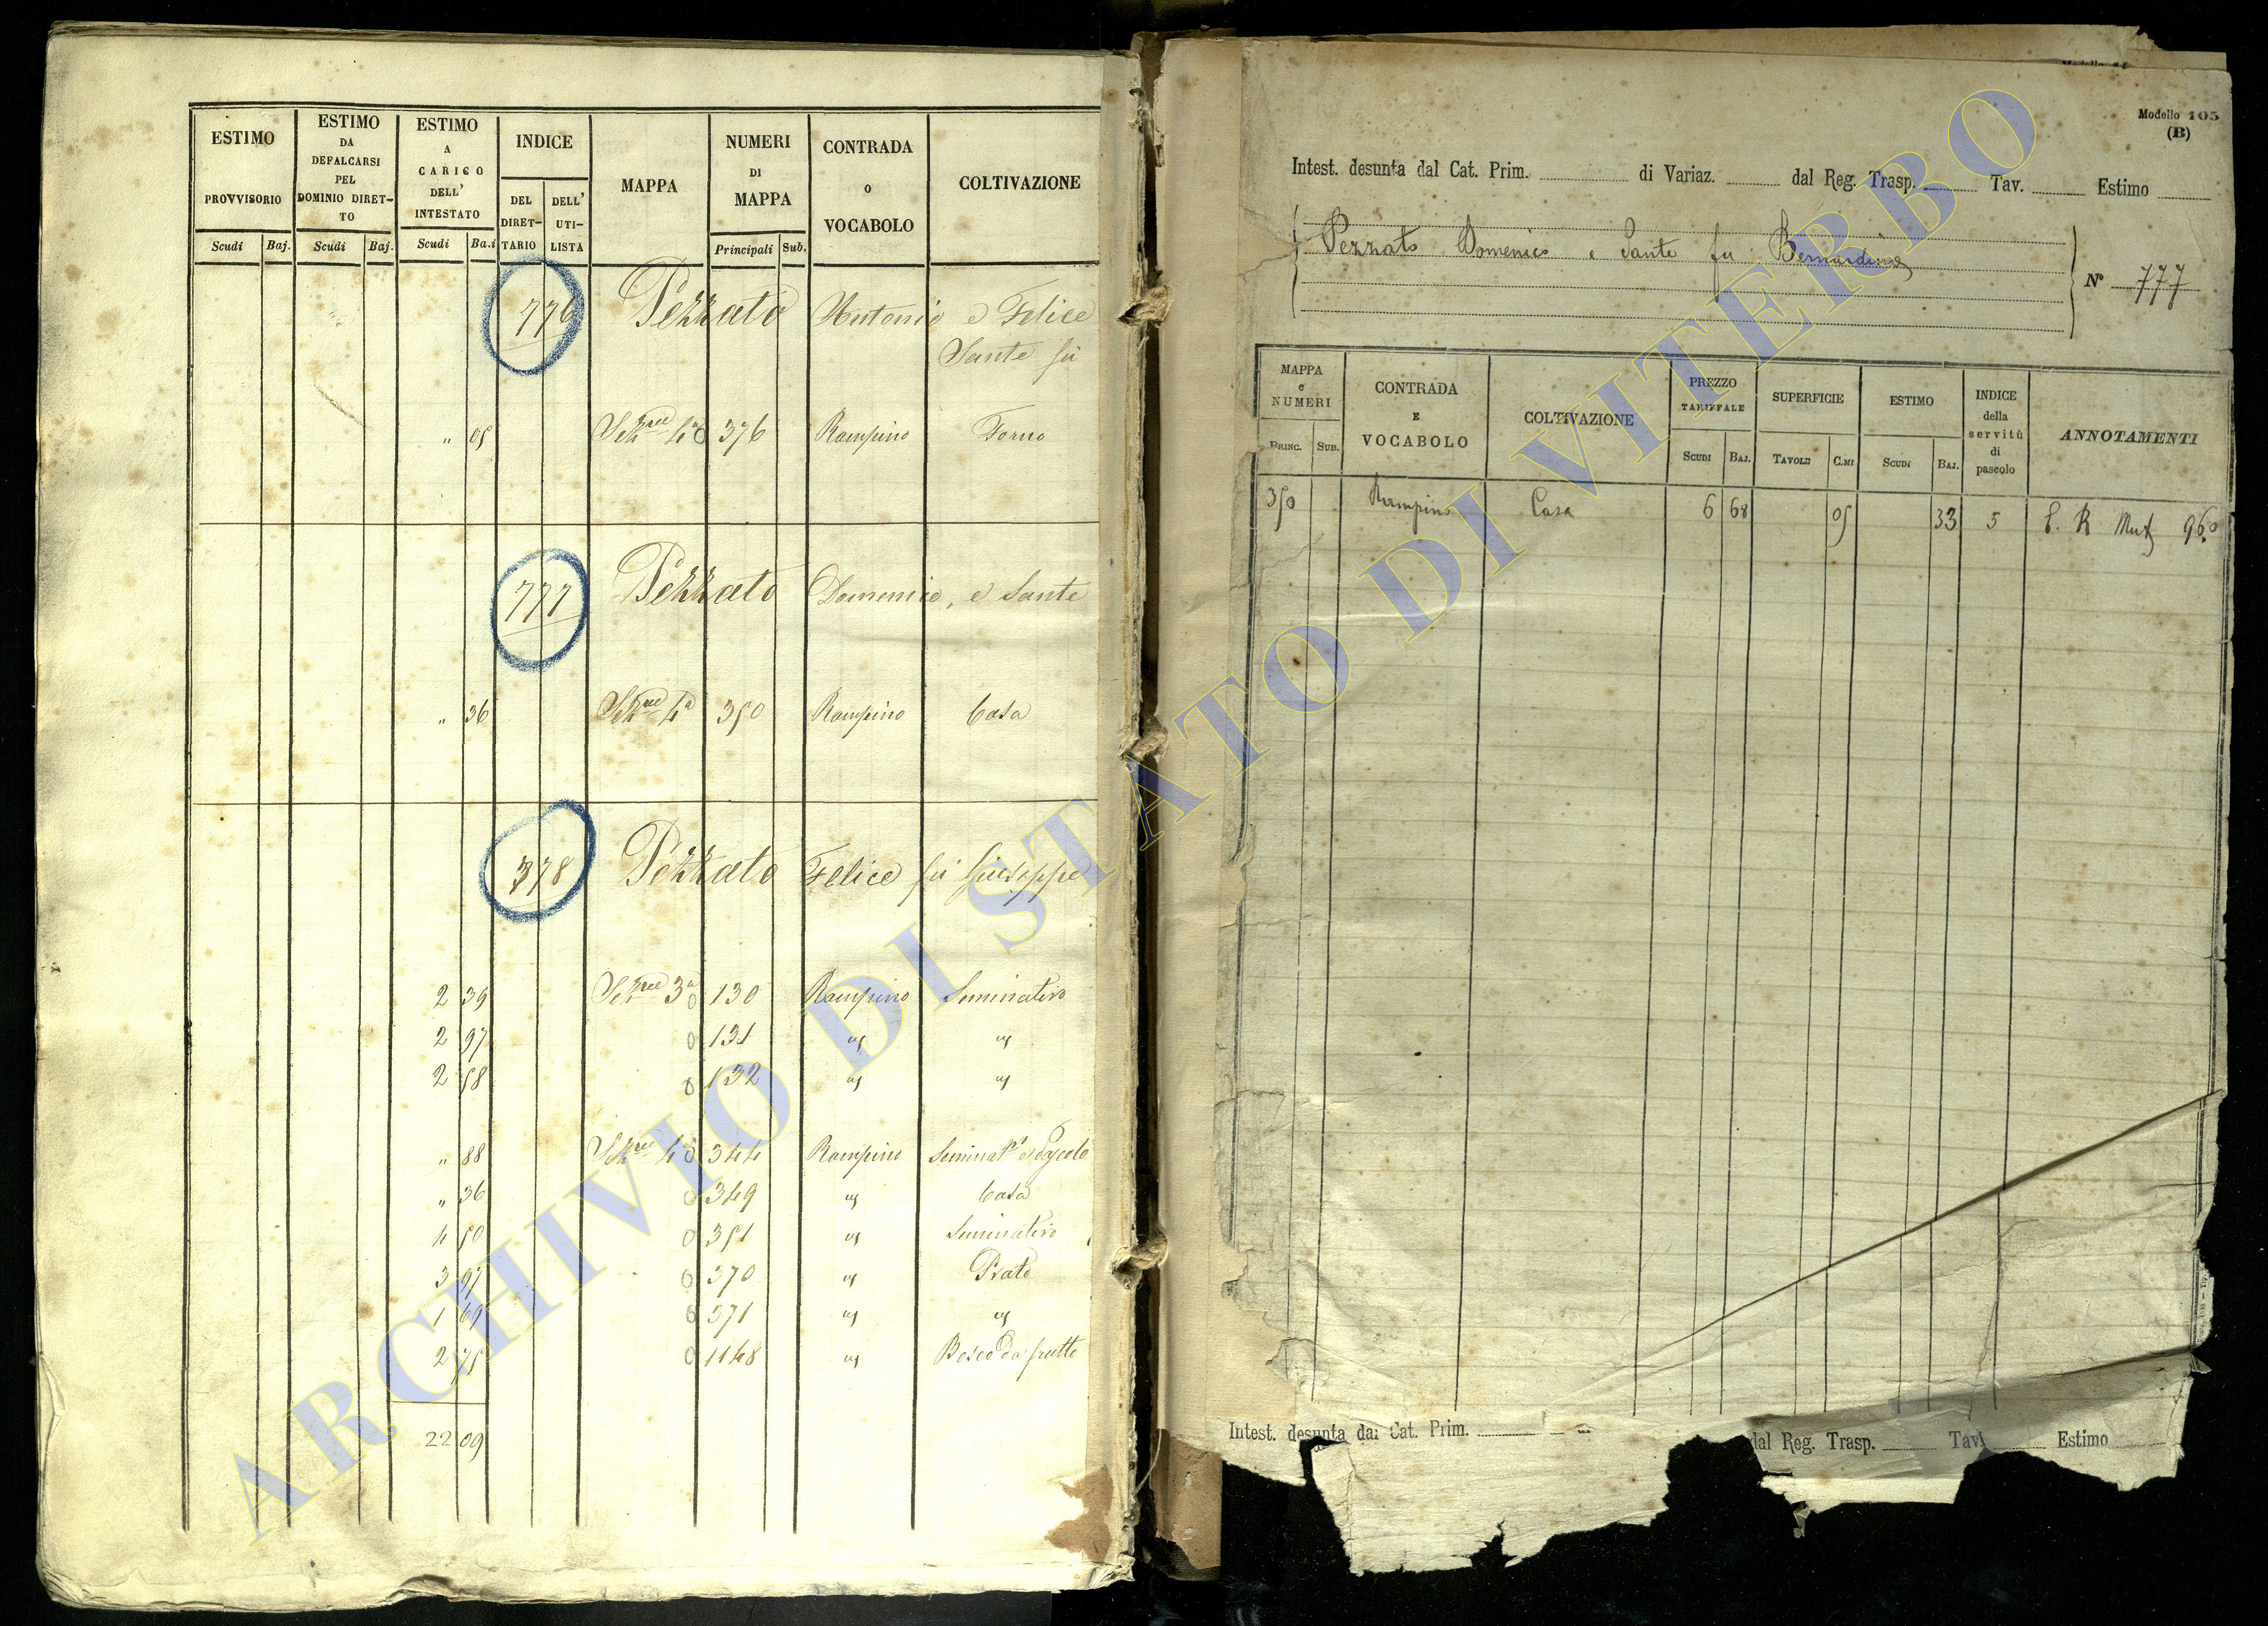 ESTIMO PROVVISORIO
ESTIMO DA DEFALCARSI PEL DOMINIO DIRET-TO
ESTIMO A CARICO DELL' INTESTATO
INDICE
DEL DIRET-TARIO
DELL' UTI-LISTA
MAPPA
NUMERI DI MAPPA
CONTRADA o VOCABOLO
COLTIVAZIONE
Scudi Baj. Scudi Baj. Scudi Ba.i Principali Sub.
776 Pezzato Antonio e Felice
Sante fu
„ 05 376 Rampino Forno
777 Pezzato Domenico, e Sante
„ 36 350 Rampino Casa
378 Pezzato Felice fu Giuseppe
2 39 3a 0 130 Rampino Seminativo
2 97 0 131 " "
2 58 0 132 " "
„ 88 0 344 Rampino
„ 36 0 349 " Casa
4 50 0 351 " Seminativo
3 97 0 370 " Prato
1 69 0 371 " "
2 75 0 1148 " Bosco da frutto
22 09
Modello 105
(B)
Intest. desunta dal Cat. Prim. di Variaz. dal Reg. Trasp. Tav. Estimo
Pezzato Domenico e Sante fu Bernardino
N° 777
MAPPA e NUMERI
PRINC. SUB.
CONTRADA E VOCABOLO
COLTIVAZIONE
PREZZO TARIFFALE
SCUDI BAJ.
SUPERFICIE
TAVOLE C.MI
ESTIMO
SCUDI BAJ.
INDICE della servitù di pascolo
ANNOTAMENTI
350 Rampino Casa 6 68 05 33 5 96.0
Intest. desunta dal Cat. Prim. dal Reg. Trasp. Tav. Estimo
ARCHIVIO DI STATO DI VITERBO